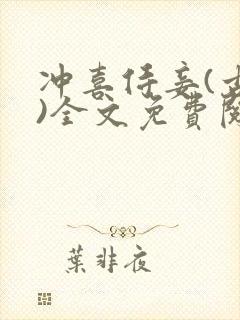 冲喜侍妾(
)全文免費
葉非夜